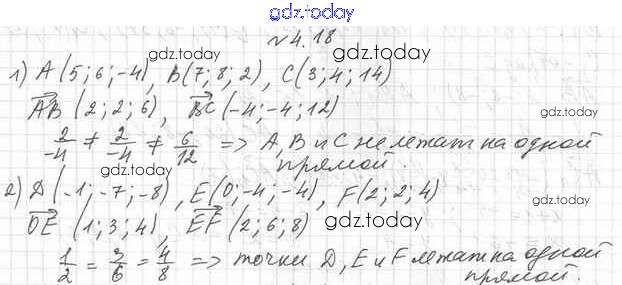 gdz.today
№4.18
gdz.today
1) A (5; 6; -4), B(7; 8; 2), C(3; 4; 14)
gdz.today
AB (2; 2; 6), BC (-4; -4; 12)
2/-4 ≠ 2/-4 ≠ 6/12 => A, B и C не лежат на одной
прямой.
gdz.today
2) D (-1; -7; -8), E(0; -4; -4), F(2; 2; 4)
gdz.today
DE (1; 3; 4), EF (2; 6; 8)
gdz.today
1/2 = 3/6 = 4/8 => точки D, E и F лежат на одной
прямой.
gdz.today